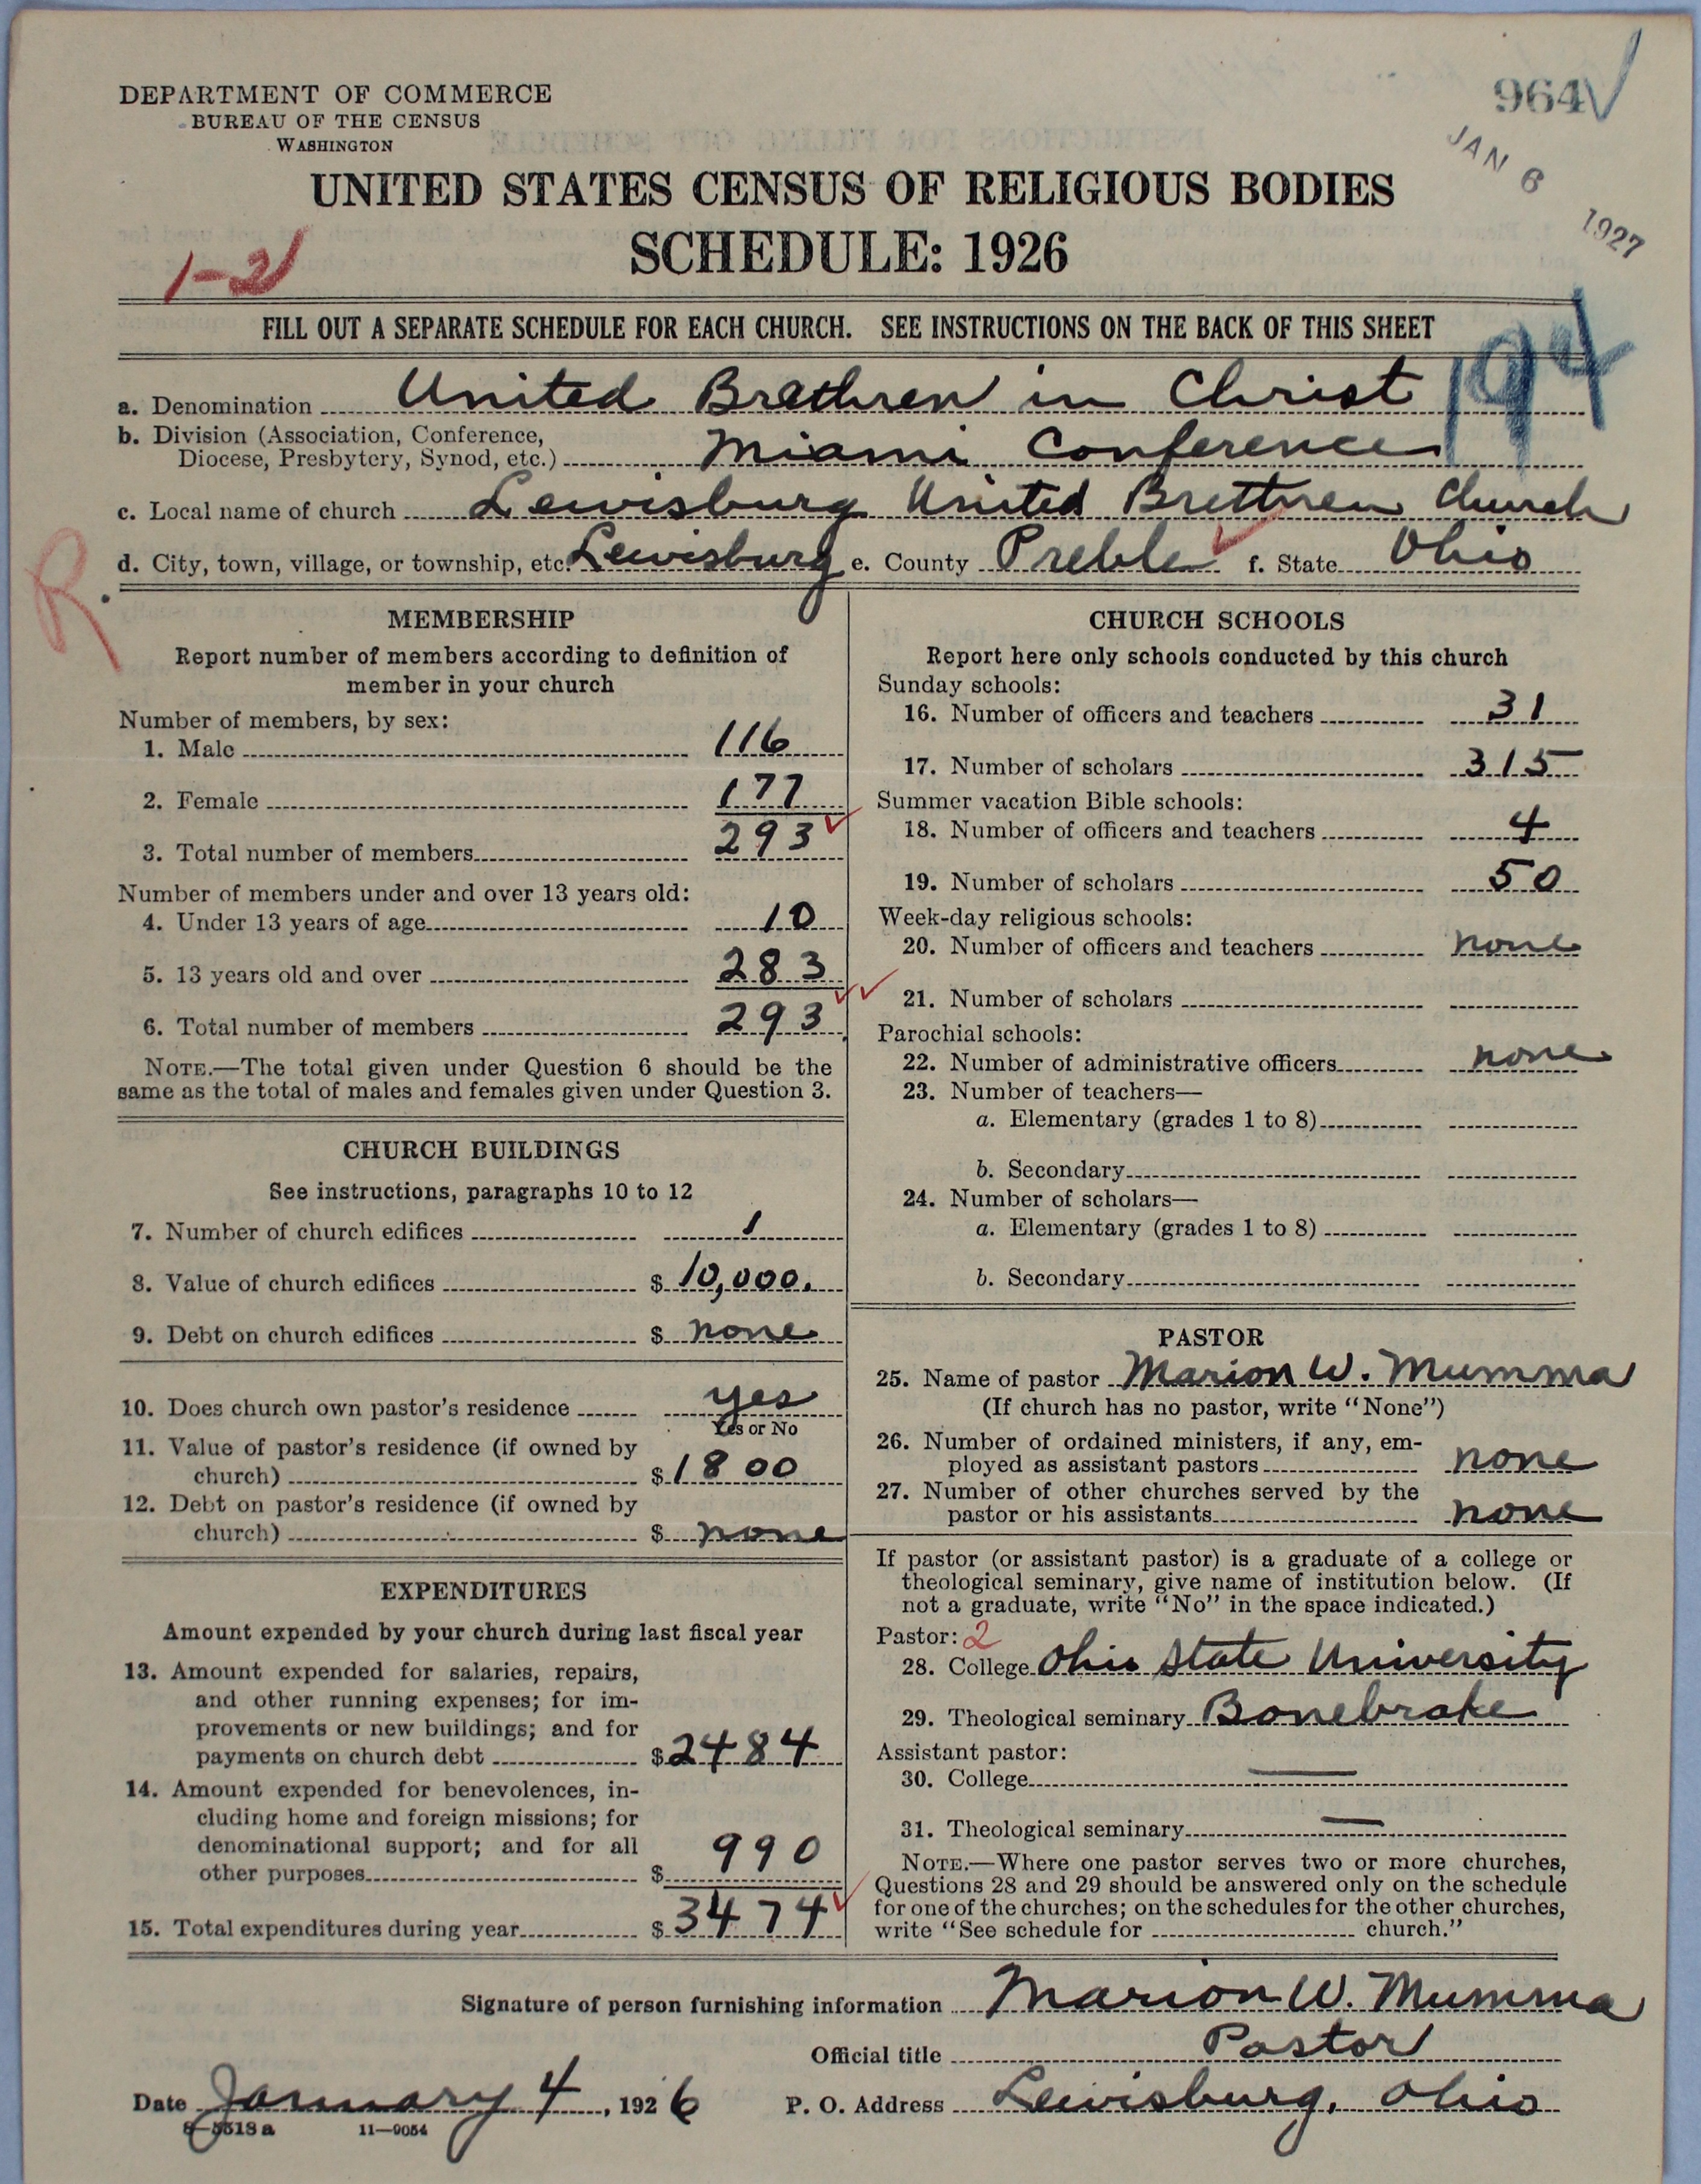 964
JAN 6 1927
DEPARTMENT OF COMMERCE
BUREAU OF THE CENSUS
WASHINGTON
UNITED STATES CENSUS OF RELIGIOUS BODIES
SCHEDULE: 1926
1-21
FILL OUT A SEPARATE SCHEDULE FOR EACH CHURCH. SEE INSTRUCTIONS ON THE BACK OF THIS SHEET
194
a. Denomination United Brethren in Christ
b. Division (Association, Conference,
Diocese, Presbytery, Synod, etc.) Miami Conference
c. Local name of church Lewisburg United Brethren Church
d. City, town, village, or township, etc. Lewisburg e. County Preble f. State Ohio
R.
MEMBERSHIP
Report number of members according to definition of
member in your church
Number of members, by sex:
1. Male 116
2. Female 177
3. Total number of members 293
Number of members under and over 13 years old:
4. Under 13 years of age 10
5. 13 years old and over 283
6. Total number of members 293
NOTE.—The total given under Question 6 should be the
same as the total of males and females given under Question 3.
CHURCH BUILDINGS
See instructions, paragraphs 10 to 12
7. Number of church edifices 1
8. Value of church edifices $ 10,000.
9. Debt on church edifices $ none
10. Does church own pastor's residence yes
Yes or No
11. Value of pastor's residence (if owned by
church) $ 1800
12. Debt on pastor's residence (if owned by
church) $ none
EXPENDITURES
Amount expended by your church during last fiscal year
13. Amount expended for salaries, repairs,
and other running expenses; for im-
provements or new buildings; and for
payments on church debt $ 2484
14. Amount expended for benevolences, in-
cluding home and foreign missions; for
denominational support; and for all
other purposes $ 990
15. Total expenditures during year $ 3474
CHURCH SCHOOLS
Report here only schools conducted by this church
Sunday schools:
16. Number of officers and teachers 31
17. Number of scholars 315
Summer vacation Bible schools:
18. Number of officers and teachers 4
19. Number of scholars 50
Week-day religious schools:
20. Number of officers and teachers none
21. Number of scholars
Parochial schools:
22. Number of administrative officers none
23. Number of teachers—
a. Elementary (grades 1 to 8)
b. Secondary
24. Number of scholars—
a. Elementary (grades 1 to 8)
b. Secondary
PASTOR
25. Name of pastor Marion W. Mumma
(If church has no pastor, write "None")
26. Number of ordained ministers, if any, em-
ployed as assistant pastors none
27. Number of other churches served by the
pastor or his assistants none
If pastor (or assistant pastor) is a graduate of a college or
theological seminary, give name of institution below. (If
not a graduate, write "No" in the space indicated.)
Pastor: 2
28. College Ohio State University
29. Theological seminary Bonebrake
Assistant pastor:
30. College —
31. Theological seminary —
NOTE.—Where one pastor serves two or more churches,
Questions 28 and 29 should be answered only on the schedule
for one of the churches; on the schedules for the other churches,
write "See schedule for church."
Signature of person furnishing information Marion W. Mumma
Official title Pastor
Date January 4, 1926 P. O. Address Lewisburg, Ohio
8—5518a 11—9054